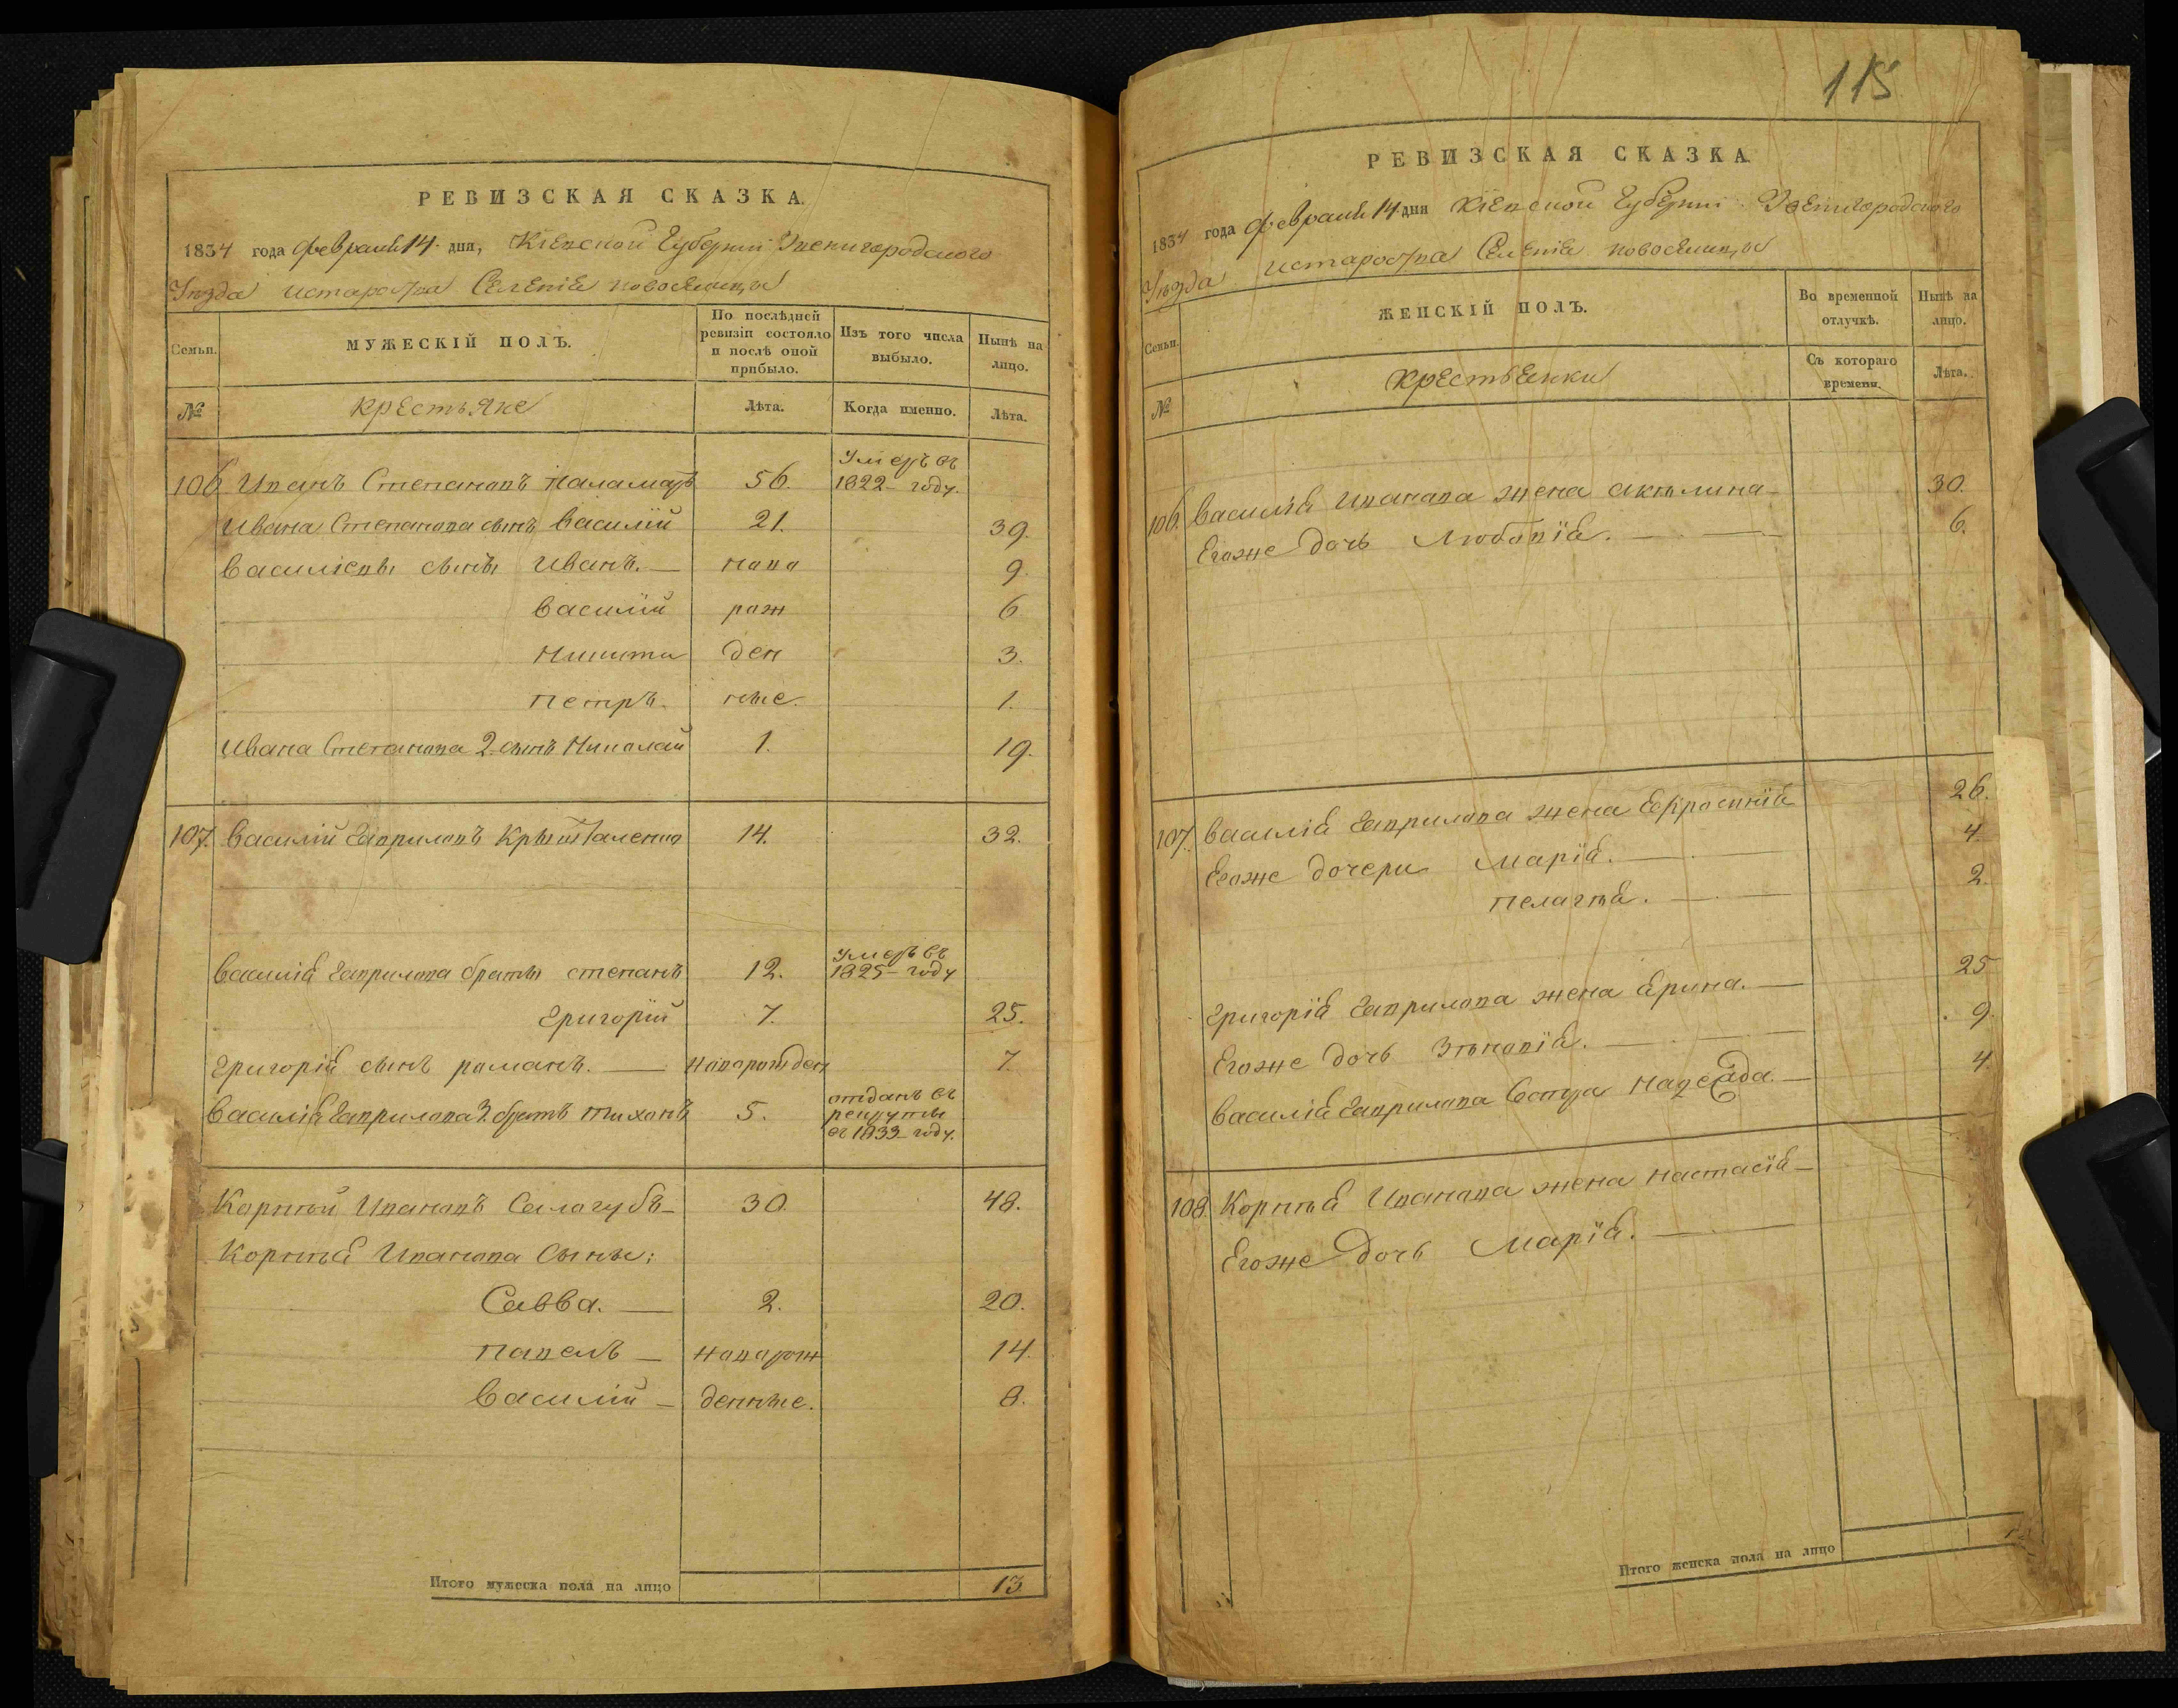 РЕВИЗСКАЯ СКАЗКА.
1834 года Февраля 14 дня, Кіевской Губерніи Звенигородского
Уѣзда Староства Селенія Новоселицы
Семьи.
МУЖЕСКІЙ ПОЛЪ.
По послѣдней ревизіи состояло и послѣ оной прибыло.
Изъ того числа выбыло.
Нынѣ на лицо.
№
крестьяне
Лѣта.
Когда именно.
Лѣта.
106 Иванъ Степановъ Паламарь 56. Умеръ въ 1822 году.
Ивана Степанова сынъ Василій 21. 39.
Василіевы сыны Иванъ. — нова 9.
Василій рож 6
Никита ден 3.
Петръ. ные. 1.
Ивана Степанова 2. сынъ Николай 1. 19.
107. Василій Гавриловъ 14. 32.
Василія Гаврилова браты Степанъ 12. Умеръ въ 1825 году
Григорій 7. 25.
Григорія сынъ Романъ. — новорожден 7.
Василія Гаврилова 3. братъ Тихонъ 5. отданъ въ рекруты въ 1833 году.
Корній Ивановъ Салогубъ 30. 48.
Корнѣя Иванова Сыны:
Савва. — 2. 20.
Павелъ — новорож 14.
Василій — денные. 8.
Итого мужеска пола на лицо 13
115
РЕВИЗСКАЯ СКАЗКА.
1834 года Февраля 14 дня Кіевской Губерніи Звенигородского
Уѣзда Староства Селенія Новоселицы
Семьи.
ЖЕНСКІЙ ПОЛЪ.
Во временной отлучкѣ.
Нынѣ на лицо.
№
крестьянки
Съ котораго времени.
Лѣта.
106. Василія Иванова жена Акилина 30.
Егоже дочь Любовія. — 6.
107. Василія Гаврилова жена Ефросинія 26.
Егоже дочери Марія. — 4.
Пелагѣя. — 2.
Григорія Гаврилова жена Ярина. — 25
Егоже дочь Зѣновія. — 9.
Василія Гаврилова Сестра 4.
108 Корнѣя Иванова жена Настасія —
Егоже дочь Марія. —
Итого женска пола на лицо